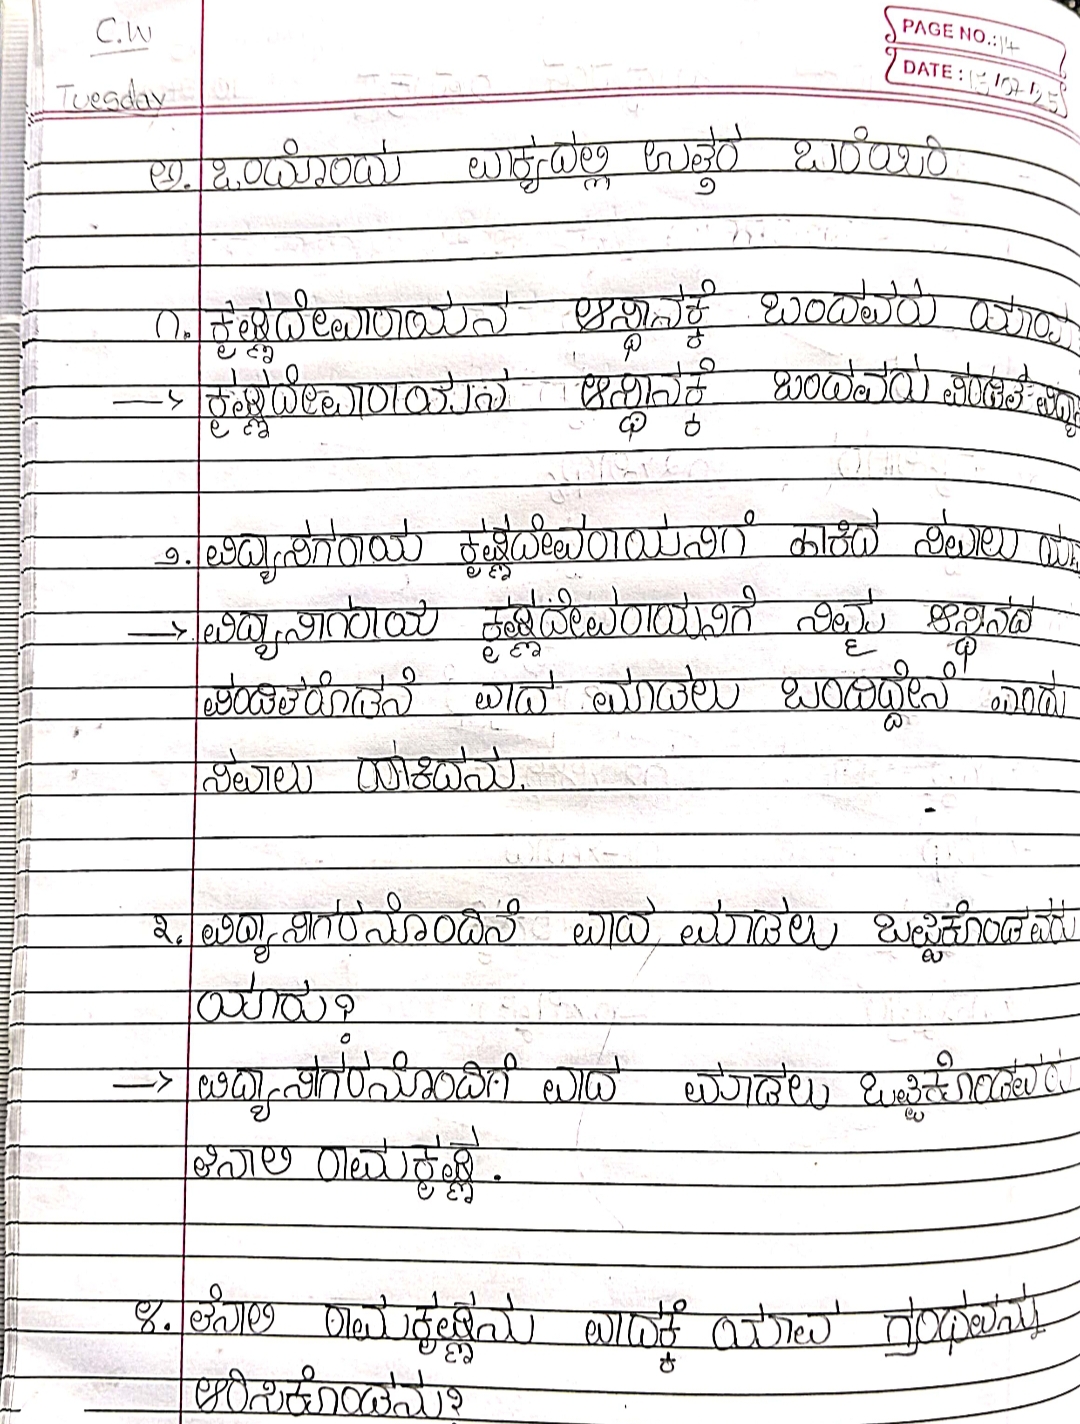 C.W
PAGE NO.: 14
DATE: 15/07/25
Tuesday
ಅ. ಒಂದೊಂದು ವಾಕ್ಯದಲ್ಲಿ ಉತ್ತರ ಬರೆಯಿರಿ
೧. ಕೃಷ್ಣದೇವರಾಯನ ಆಸ್ಥಾನಕ್ಕೆ ಬಂದವರು
→ ಕೃಷ್ಣದೇವರಾಯನ ಆಸ್ಥಾನಕ್ಕೆ ಬಂದವರು ಪಂಡಿತ
೨. ವಿದ್ಯಾಸಾಗರಾಯ ಕೃಷ್ಣದೇವರಾಯನಿಗೆ ಹಾಕಿದ ಸವಾಲು
→ ವಿದ್ಯಾಸಾಗರಾಯ ಕೃಷ್ಣದೇವರಾಯನಿಗೆ ನಿಮ್ಮ ಆಸ್ಥಾನದ
ಪಂಡಿತರೊಡನೆ ವಾದ ಮಾಡಲು ಬಂದಿದ್ದೇನೆ ಎಂದು
ಸವಾಲು ಹಾಕಿದನು.
೩. ವಿದ್ಯಾಸಾಗರನೊಂದಿಗೆ ವಾದ ಮಾಡಲು ಒಪ್ಪಿಕೊಂಡವರು
ಯಾರು?
→ ವಿದ್ಯಾಸಾಗರನೊಂದಿಗೆ ವಾದ ಮಾಡಲು ಒಪ್ಪಿಕೊಂಡವರು
ತೆನಾಲಿ ರಾಮಕೃಷ್ಣ.
೪. ತೆನಾಲಿ ರಾಮಕೃಷ್ಣನು ವಾದಕ್ಕೆ ಯಾವ ಗ್ರಂಥವನ್ನು
ಆರಿಸಿಕೊಂಡನು?